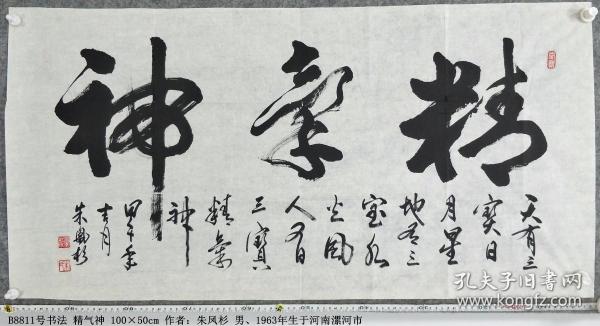 精氣神
天有三
寶日
月星
地有三
宝水
火風
人有
三寶
精氣
神
甲午年
吉月
朱風杉
孔夫子旧书网
B8811号书法 精气神 100×50cm 作者：朱风杉 男、1963年生于河南漯河市